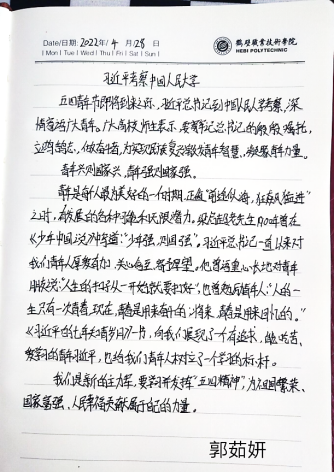 Date/日期: 2022年/4月/28日
鹤壁职业技术学院
HEBI POLYTECHNIC
Mon Tue Wed Thu Fri Sat Sun
习近平考察中国人民大学
五四青年节即将到来之际，习近平总书记到中国人民大学考察，深
情寄语广大青年。广大高校师生表示，要牢记总书记的殷殷嘱托，
立鸿鹄志，做奋斗者，为实现民族复兴激发青年智慧，凝聚青年力量。
青年兴则国家兴，青年强则国家强。
青年是每个人最为美好的一个时期，正值
之时，有发展的各种可能和无限潜力。梁启超先生1900年曾在
《少年中国说》中写道："少年强，则国强"。习近平总书记一直以来对
我们青年人厚爱有加，关心备至，寄予厚望。他曾语重心长地对青年
朋友说："人生的扣子从一开始就要扣好"。也曾勉励青年人："人的一
生只有一次青春。现在，青春是用来奋斗的；将来，青春是用来回忆的。"
《习近平的七年知青岁月》一书，向我们展现了一个有追求、能吃苦、
爱学习的青年习近平，也给我们青年人树立了一个学习的标杆。
我们是新的主力军，要学习并发挥"五四精神"，为祖国繁荣、
国家富强、人民幸福贡献属于自己的力量。
郭茹妍